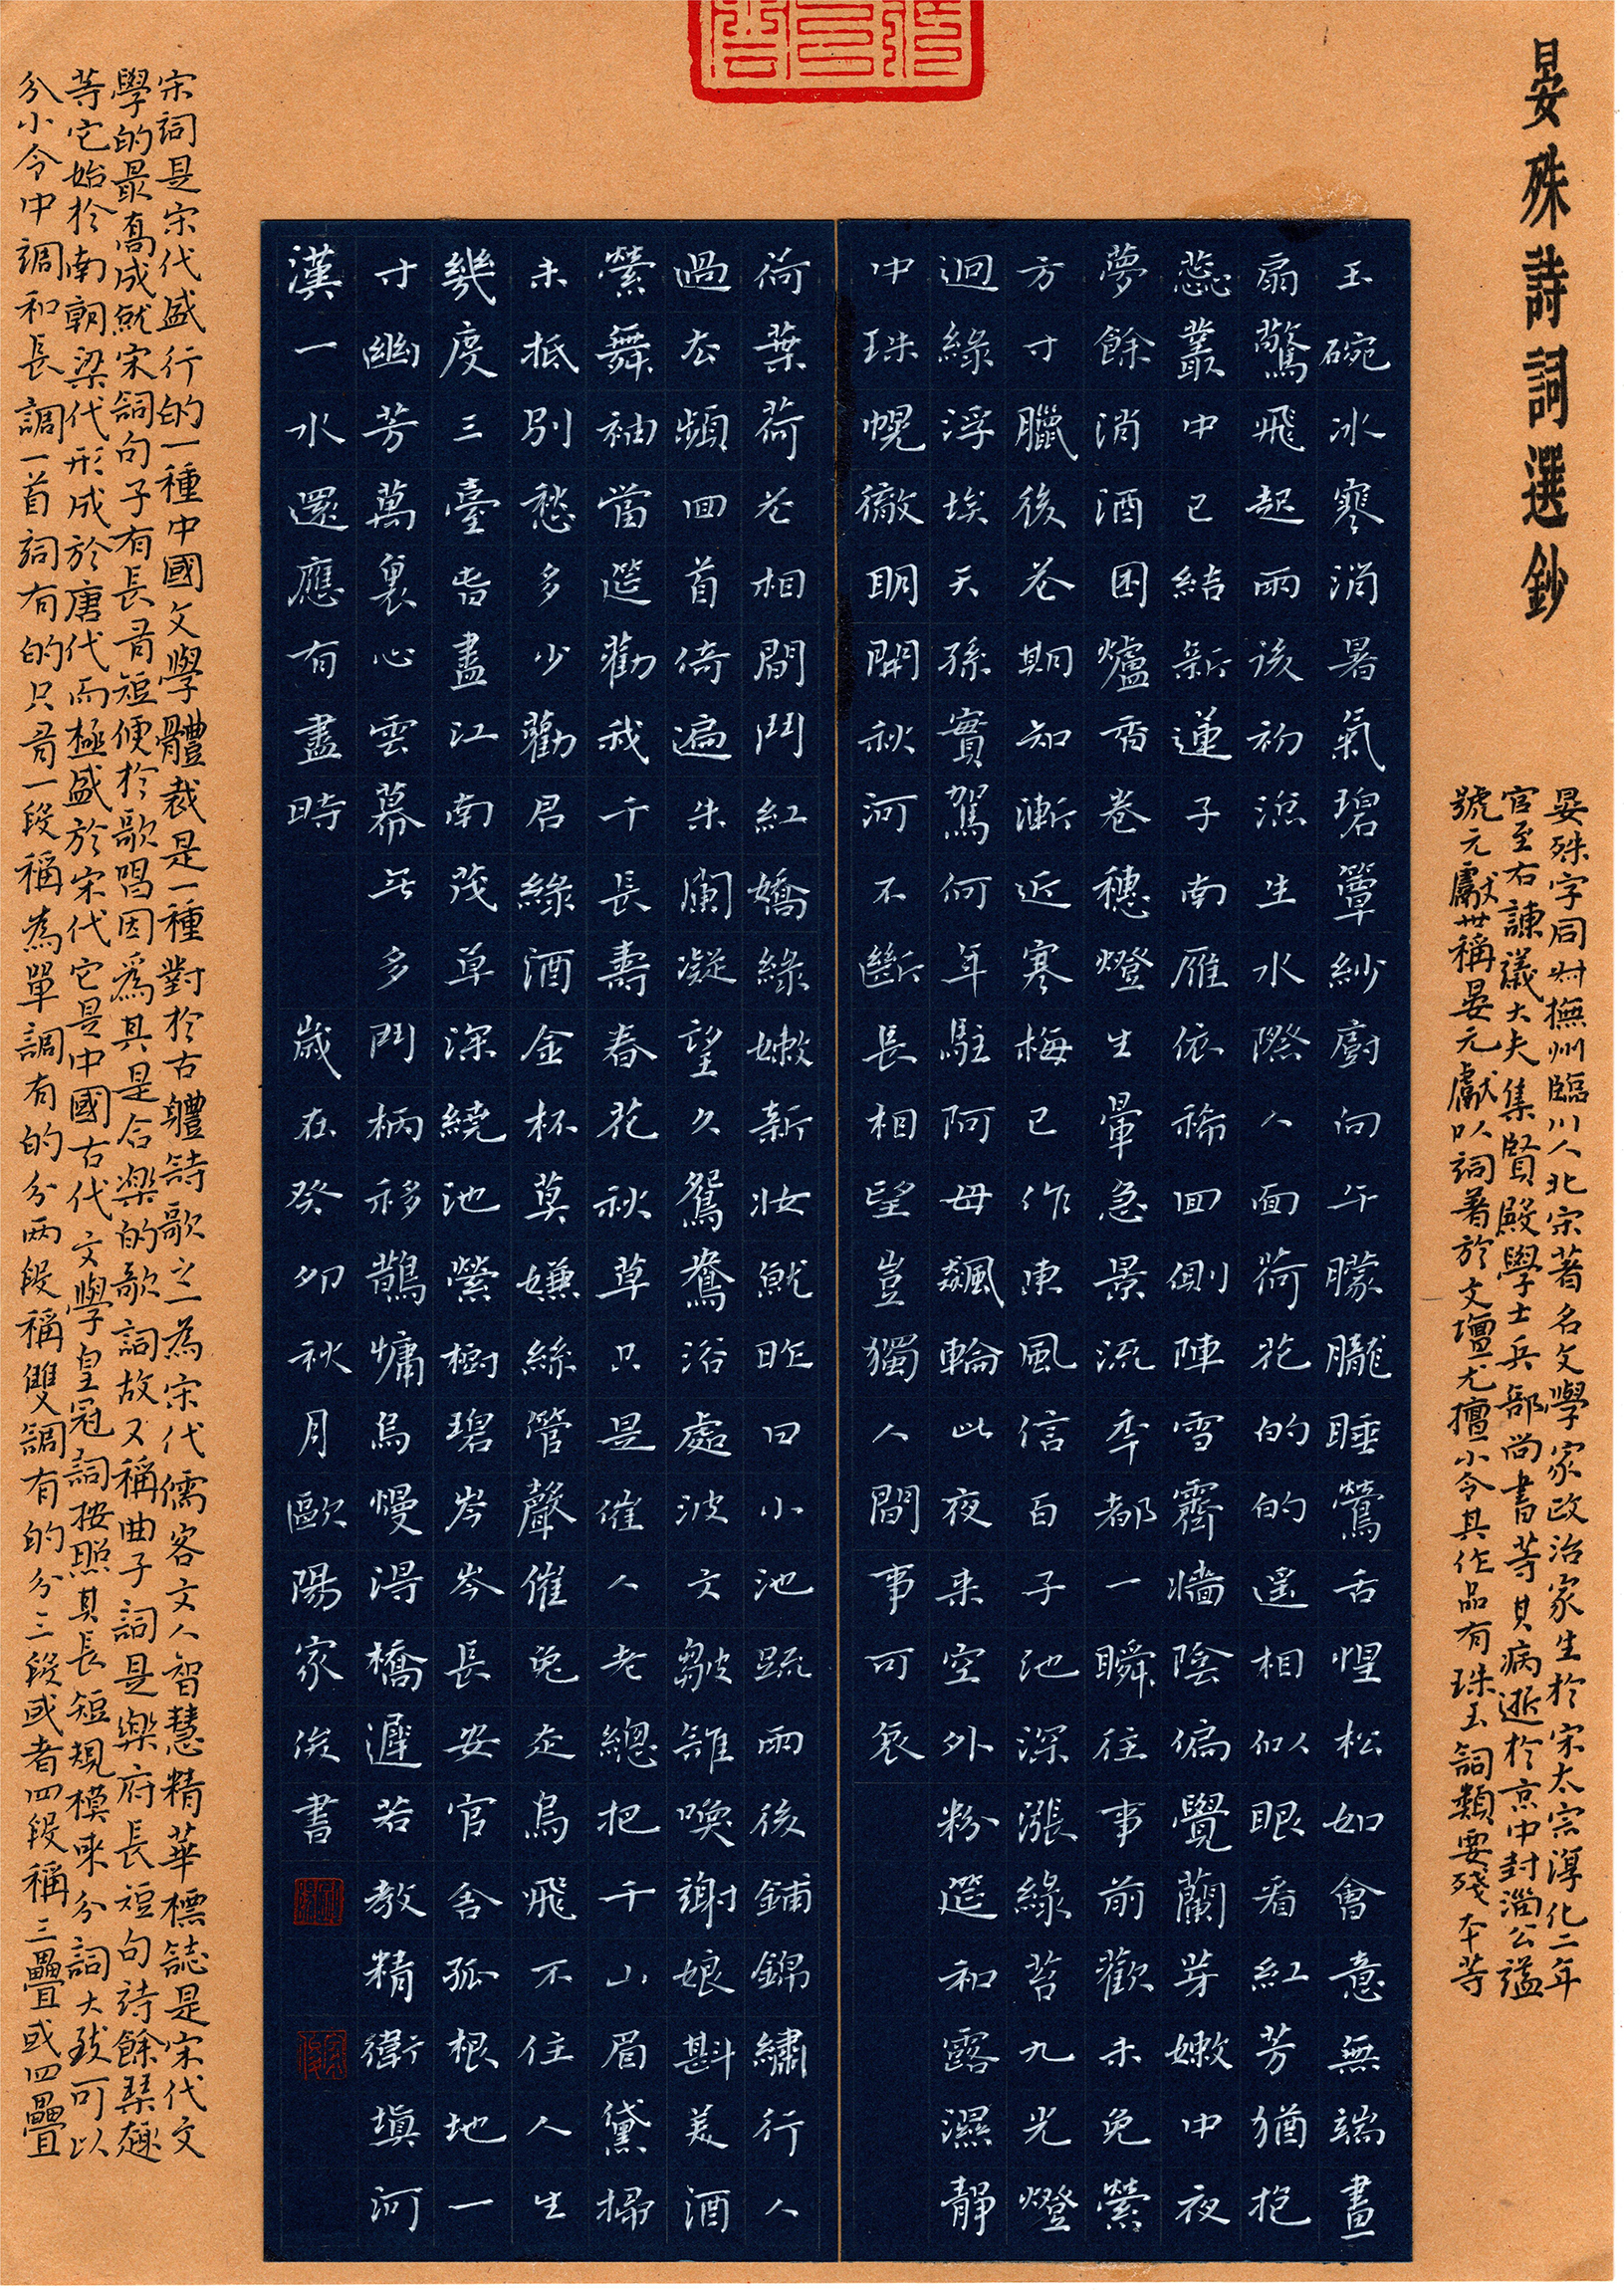 晏殊詩詞選鈔
晏殊字同叔撫州臨川人北宋著名文學家政治家生於宋太宗淳化二年
官至右諫議大夫集賢殿學士兵部尚書等其病逝於京中封淄公謚
號元獻世稱晏元獻以詞著於文壇尤擅小令其作品有珠玉詞類要殘本等
玉碗冰寒消暑氣碧簟紗廚向午朦朧睡鶯舌惺松如會意無端畫
扇驚飛起雨後初涼生水際人面荷花的的遥相似眼看紅芳猶抱
蕊叢中已結新蓮子南雁依稀回側陣雪霽墻陰偏覺蘭芽嫩中夜
夢餘消酒困爐香卷穗燈生暈急景流年都一瞬往事前歡未免縈
方寸臘後花期知漸近寒梅已作東風信百子池深漲綠苔九光燈
迥綠浮埃天孫寶駕何年駐阿母飆輪此夜来空外粉筵和露濕靜
中珠幌徹明開秋河不斷長相望豈獨人間事可哀
荷葉荷花相間鬥紅嬌綠嫩新妝就昨日小池疏雨後鋪錦繡行人
過去頻回首倚遍朱闌凝望久鴛鴦浴處波文皺誰喚謝娘斟美酒
縈舞袖當筵勸我千長壽春花秋草只是催人老總把千山眉黛掃
未抵別愁多少勸君綠酒金杯莫嫌絲管聲催兔走烏飛不住人生
幾度三臺書盡江南茂草深繞池縈樹碧岑岑長安官舍孤根地一
寸幽芳萬裏心雲幕無多鬥柄移鵲慵烏慢得橋遲若教精衛填河
漢一水還應有盡時 歲在癸卯秋月歐陽家俊書
宋詞是宋代盛行的一種中國文學體裁是一種對於古體詩歌之一為宋代儒客文人智慧精華標誌是宋代文
學的最高成就宋詞句子有長有短便於歌唱因為其是合樂的歌詞故又稱曲子詞是樂府長短句詩餘琴趣
等它始於南朝梁代形成於唐代而極盛於宋代它是中國古代文學皇冠詞按照其長短規模来分詞大致可以
分小令中調和長調一首詞有的只有一段稱為單調有的分兩段稱雙調有的分三段或者四段稱三疊或四疊